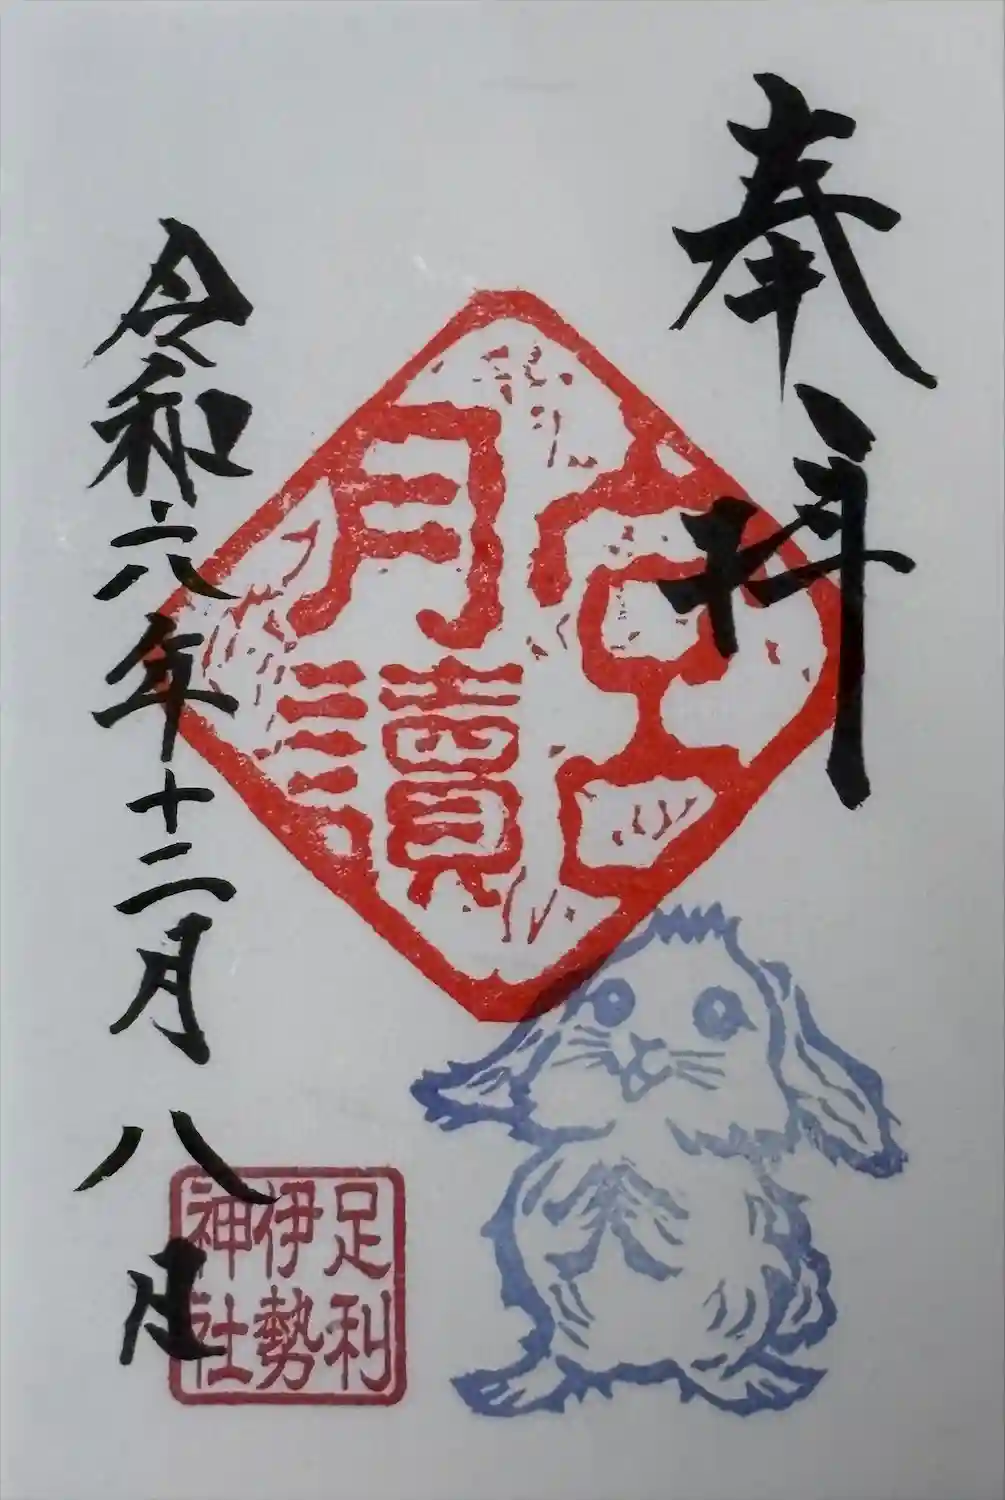 奉拝
宮
月讀
令和六年十二月八日
足利
伊勢
神社